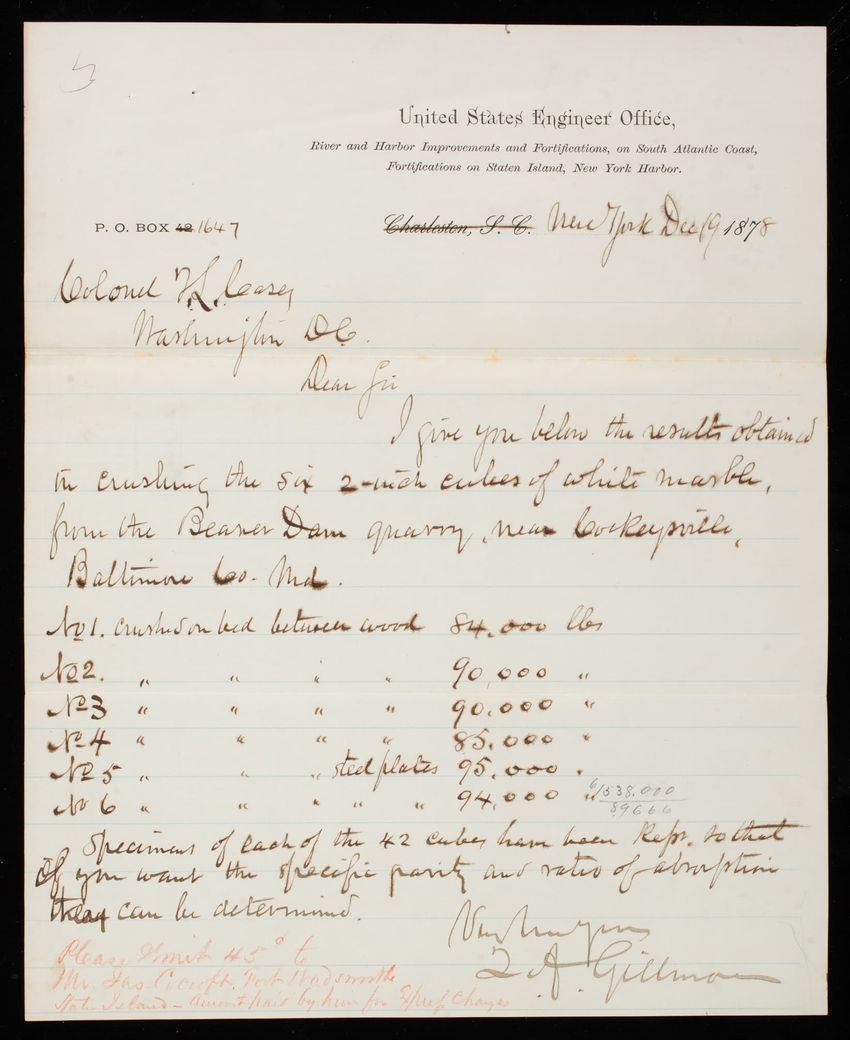 United States Engineer Office,
River and Harbor Improvements and Fortifications, on South Atlantic Coast,
Fortifications on Staten Island, New York Harbor.
P. O. BOX 42 1647 Charleston, S. C. New York Dec 19 1878
Colonel T. L. Casey
Washington D.C.
Dear Sir
I give you below the results obtained
in crushing the six 2-inch cubes of white marble,
from the Beaver Dam quarry, near Cockeysville,
Baltimore Co. Md.
No 1. crushed on bed between wood 84.000 lbs
No 2. " " " " 90,000 "
No 3 " " " " 90.000 "
No 4 " " " " 85.000 "
No 5 " " " steel plates 95.000 "
No 6 " " " " " 94,000 " 6/538.000
89666
Specimens of each of the 42 cubes have been kept, so that
if you want the specific gravity and ratio of absorption
they can be determined.
Q. A. Gillmore
Please remit 45 to
Mr. Jas. Cocroft. Fort Wadsworth
Staten Island - amount paid by him for Express Charges